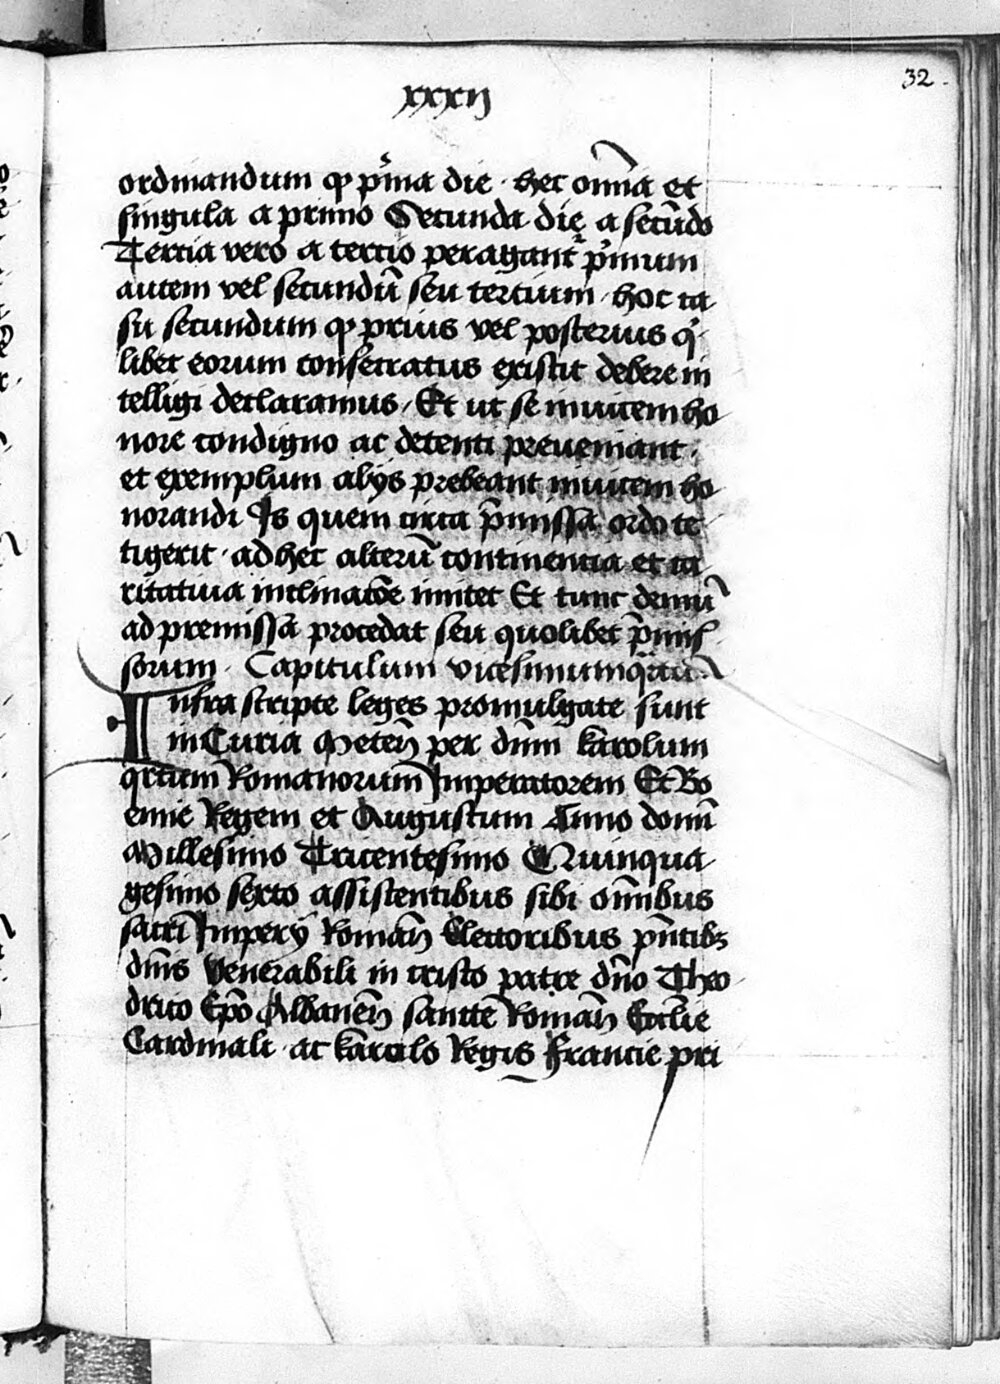 32.
xxxij
ordinandum qꝫ p̃ma die · hec om̃ia et
singula a primo Secunda die a secũdo
Tertia vero a tertio peragant᷑ p̃mum
autem vel secundũ seu tertium · hoc ca
su secundum qꝫ prius vel posterius q̃
libet eorum consecratus existit debere in
telligi declaramus / Et ut se inuicem ho
nore condigno ac decenti preueniant ·
et exemplum alijs prebeant inuicem ho
norandi Is quem circa p̃missa ordo te
tigerit · ad hec alterũ continencia et ca
ritatiua inclinacõe inuitet Et tunc demũ
ad premissã procedat seu quolibet p̃mis
sorum · Capitulum vicesimumq̃rtũ
Infra scripte leges promulgate sunt
in Curia Meteñ per dñm karolum
qrtum Romanorum Imperatorem Et Bo
emie Regem et Augustum Anno domĩ
Millesimo Tricentesimo Quinqua
gesimo sexto assistentibus sibi om̃ibus
sacri Imperij Romañ Electoribus p̃ntibꝫ
dñis Venerabili in cristo patre dño Theo
drico Ep̃o Albaneñ sancte Romañ Eccl̃ie
Cardinali · ac karolo Regis Francie pri